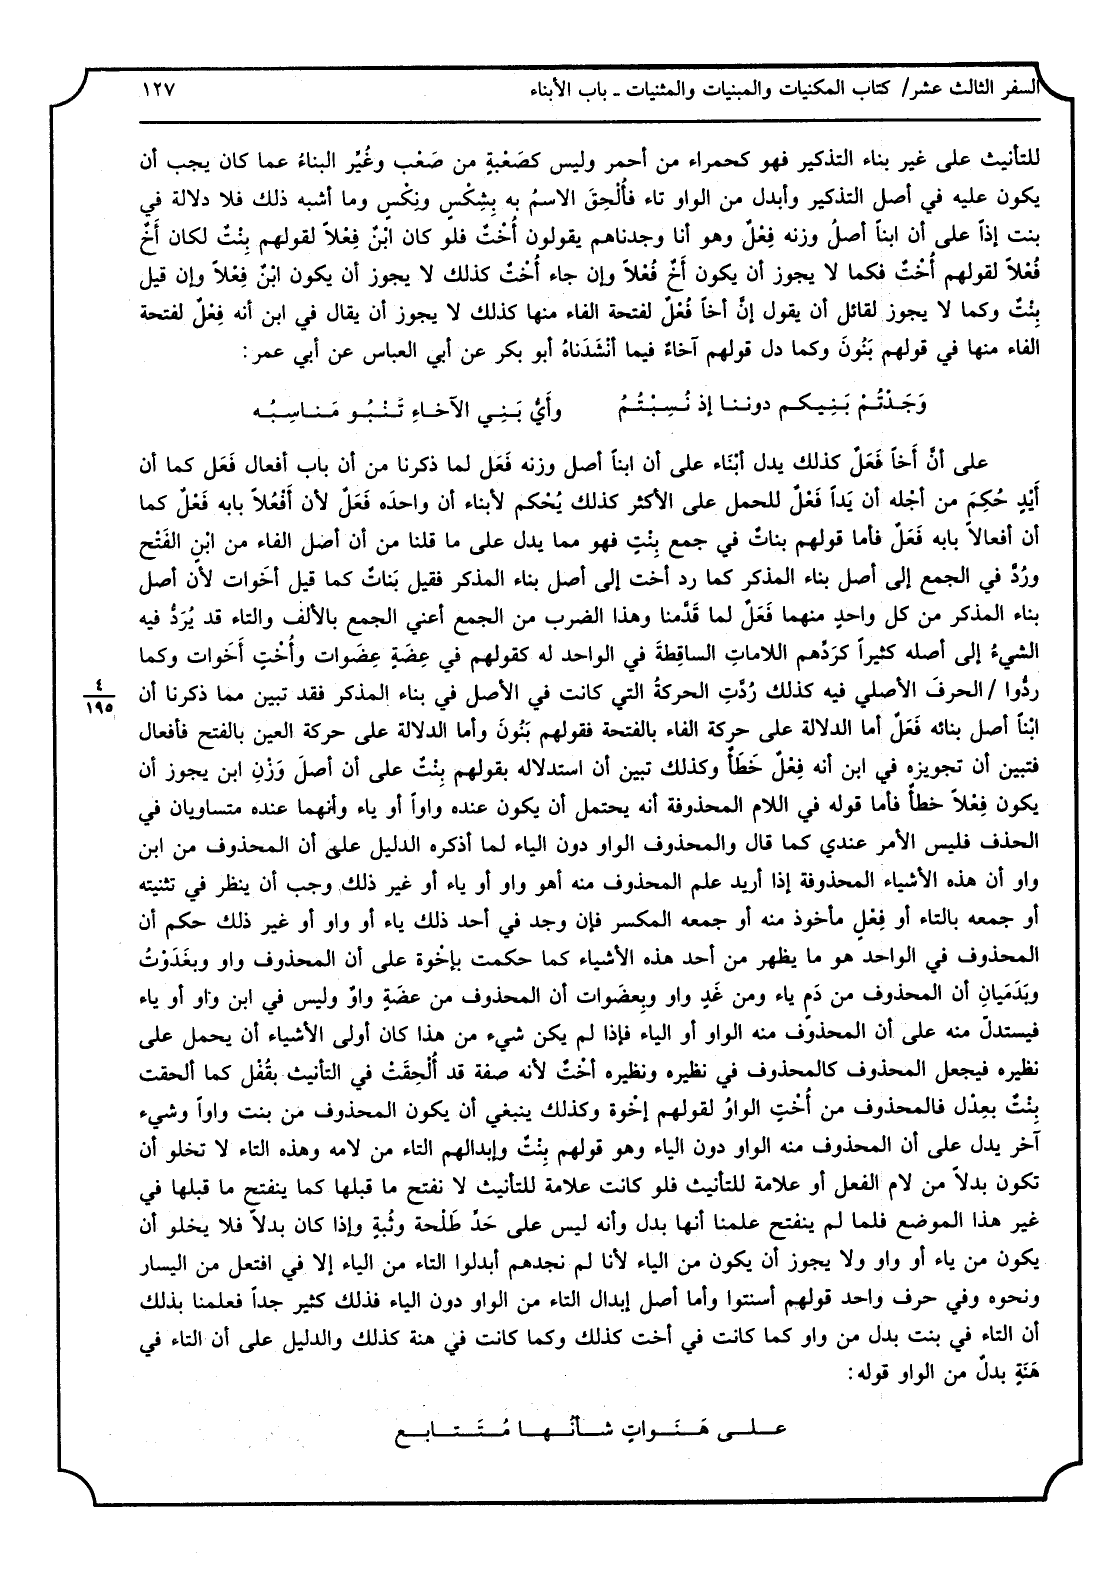 السفر الثالث عشر/ كتاب المكنيات والمبنيات والمثنيات ـ باب الأبناء ١٢٧
للتأنيث على غير بناء التذكير فهو كحمراء من أحمر وليس كصَعْبةٍ من صَعْب وغُيِّر البناءُ عما كان يجب أن
يكون عليه في أصل التذكير وأبدل من الواو تاء فأُلْحِقَ الاسمُ به بِشِكْسٍ ونِكْسٍ وما أشبه ذلك فلا دلالة في
بنت إذاً على أن ابناً أصلُ وزنه فِعْلٌ وهو أنا وجدناهم يقولون أُخْتٌ فلو كان ابْنٌ فِعْلاً لقولهم بِنْتٌ لكان أَخٌ
فُعْلاً لقولهم أُخْتٌ فكما لا يجوز أن يكون أَخٌ فُعْلاً وإن جاء أُخْتٌ كذلك لا يجوز أن يكون ابْنٌ فِعْلاً وإن قيل
بِنْتٌ وكما لا يجوز لقائل أن يقول إنَّ أخاً فُعْلٌ لفتحة الفاء منها كذلك لا يجوز أن يقال في ابن أنه فِعْلٌ لفتحة
الفاء منها في قولهم بَنُونَ وكما دل قولهم آخاءٌ فيما أنْشَدَناهُ أبو بكر عن أبي العباس عن أبي عمر:
وَجَدْتُمْ بَنِيكم دوننا إذ نُسِبْتُمُ وأَيُّ بَنِي الآخاءِ تَنْبُو مَناسِبُه
على أنَّ أخاً فَعَلٌ كذلك يدل أبْنَاء على أن ابناً أصل وزنه فَعَل لما ذكرنا من أن باب أفعال فَعَل كما أن
أَيْدٍ حُكِمَ من أجْله أن يَداً فَعْلٌ للحمل على الأكثر كذلك يُحْكم لأبناء أن واحدَه فَعَلٌ لأن أَفْعُلاً بابه فَعْلٌ كما
أن أفعالاً بابه فَعَلٌ فأما قولهم بناتٌ في جمع بِنْتٍ فهو مما يدل على ما قلنا من أن أصل الفاء من ابْنٍ الفَتْح
ورُدَّ في الجمع إلى أصل بناء المذكر كما رد أخت إلى أصل بناء المذكر فقيل بَناتٌ كما قيل أخَوات لأن أصل
بناء المذكر من كل واحدٍ منهما فَعَلٌ لما قَدَّمنا وهذا الضرب من الجمع أعني الجمع بالألف والتاء قد يُرَدُّ فيه
الشيءُ إلى أصله كثيراً كرَدِّهم اللاماتِ الساقِطةَ في الواحد له كقولهم في عِضَةٍ عِضَوات وأُخْتٍ أَخَوات وكما
ردُّوا / الحرفَ الأصلي فيه كذلك رُدَّتِ الحركةُ التي كانت في الأصل في بناء المذكر فقد تبين مما ذكرنا أن
٤
١٩٥
ابْناً أصل بنائه فَعَلٌ أما الدلالة على حركة الفاء بالفتحة فقولهم بَنُونَ وأما الدلالة على حركة العين بالفتح فأفعال
فتبين أن تجويزه في ابن أنه فِعْلٌ خَطَأٌ وكذلك تبين أن استدلاله بقولهم بِنْتٌ على أن أصلَ وَزْنِ ابن يجوز أن
يكون فِعْلاً خطأٌ فأما قوله في اللام المحذوفة أنه يحتمل أن يكون عنده واواً أو ياء وأنهما عنده متساويان في
الحذف فليس الأمر عندي كما قال والمحذوف الواو دون الياء لما أذكره الدليل على أن المحذوف من ابن
واو أن هذه الأشياء المحذوفة إذا أريد علم المحذوف منه أهو واو أو ياء أو غير ذلك وجب أن ينظر في تثنيته
أو جمعه بالتاء أو فِعْلٍ مأخوذ منه أو جمعه المكسر فإن وجد في أحد ذلك ياء أو واو أو غير ذلك حكم أن
المحذوف في الواحد هو ما يظهر من أحد هذه الأشياء كما حكمت بإخْوة على أن المحذوف واو وبغَدَوْتُ
وبَدَمَيانِ أن المحذوف من دَمٍ ياء ومن غَدٍ واو وبِعضَوات أن المحذوف من عضَةٍ واوٌ وليس في ابن واو أو ياء
فيستدلّ منه على أن المحذوف منه الواو أو الياء فإذا لم يكن شيء من هذا كان أولى الأشياء أن يحمل على
نظيره فيجعل المحذوف كالمحذوف في نظيره ونظيره أخْتٌ لأنه صفة قد أُلْحِقَتْ في التأنيث بقُفْل كما ألحقت
بِنْتٌ بعِدْل فالمحذوف من أُخْتٍ الواوُ لقولهم إخْوة وكذلك ينبغي أن يكون المحذوف من بنت واواً وشيء
آخر يدل على أن المحذوف منه الواو دون الياء وهو قولهم بِنْتٌ وإبدالهم التاء من لامه وهذه التاء لا تخلو أن
تكون بدلاً من لام الفعل أو علامة للتأنيث فلو كانت علامة للتأنيث لا نفتح ما قبلها كما ينفتح ما قبلها في
غير هذا الموضع فلما لم ينفتح علمنا أنها بدل وأنه ليس على حَدِّ طَلْحة وثُبةٍ وإذا كان بدلاً فلا يخلو أن
يكون من ياء أو واو ولا يجوز أن يكون من الياء لأنا لم نجدهم أبدلوا التاء من الياء إلا في افتعل من اليسار
ونحوه وفي حرف واحد قولهم أسنتوا وأما أصل إبدال التاء من الواو دون الياء فذلك كثير جداً فعلمنا بذلك
أن التاء في بنت بدل من واو كما كانت في أخت كذلك وكما كانت في هنة كذلك والدليل على أن التاء في
هَنَةٍ بدلٌ من الواو قوله:
على هَنَواتٍ شأنُها مُتَتابع